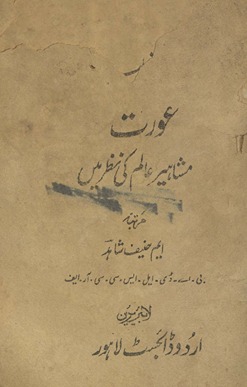 عورت
مشاہیر عالم کی نظر میں
مرتبہ
ایم حنیف شاہد
بی۔اے۔ ڈی۔ ایل۔ ایس۔ سی۔ سی۔ آر۔ ایف
لائبریرین
اردو ڈائجسٹ لاہور